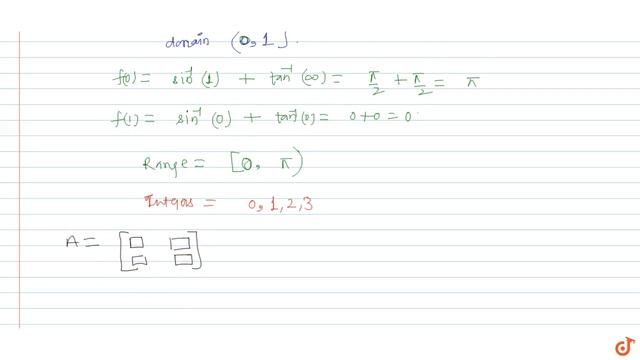 domain (0,1].
f(0) = sin⁻¹(1) + tan⁻¹(∞) = π/2 + π/2 = π
f(1) = sin⁻¹(0) + tan⁻¹(0) = 0+0 = 0
Range = [0, π)
Intgas = 0,1,2,3
A = [□ □
□ □]